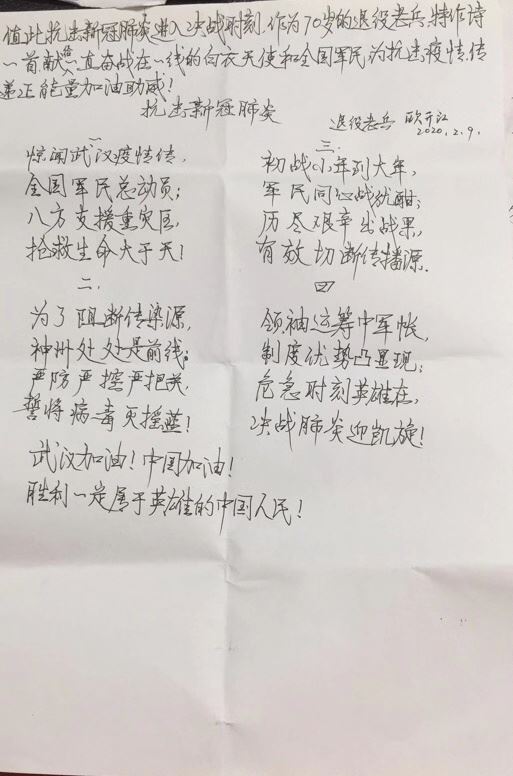 值此抗击新冠肺炎进入决战时刻,作为70岁的退役老兵,特作诗
一首,献给一直奋战在一线的白衣天使和全国军民,为抗击疫情,传
递正能量加油助威!
抗击新冠肺炎
退役老兵 欧开江
2020.2.9.
一
惊闻武汉疫情传,
全国军民总动员;
八方支援重灾区,
抢救生命大于天!
二.
为了阻断传染源,
神州处处是前线。
严防严控严把关,
誓将病毒灭摇蓝!
三.
初战小年到大年,
军民同心战犹酣;
历尽艰辛出战果,
有效切断传播源.
四
领袖运筹中军帐,
制度优势凸显现;
危急时刻英雄在,
决战肺炎迎凯旋!
武汉加油!中国加油!
胜利一定属于英雄的中国人民!